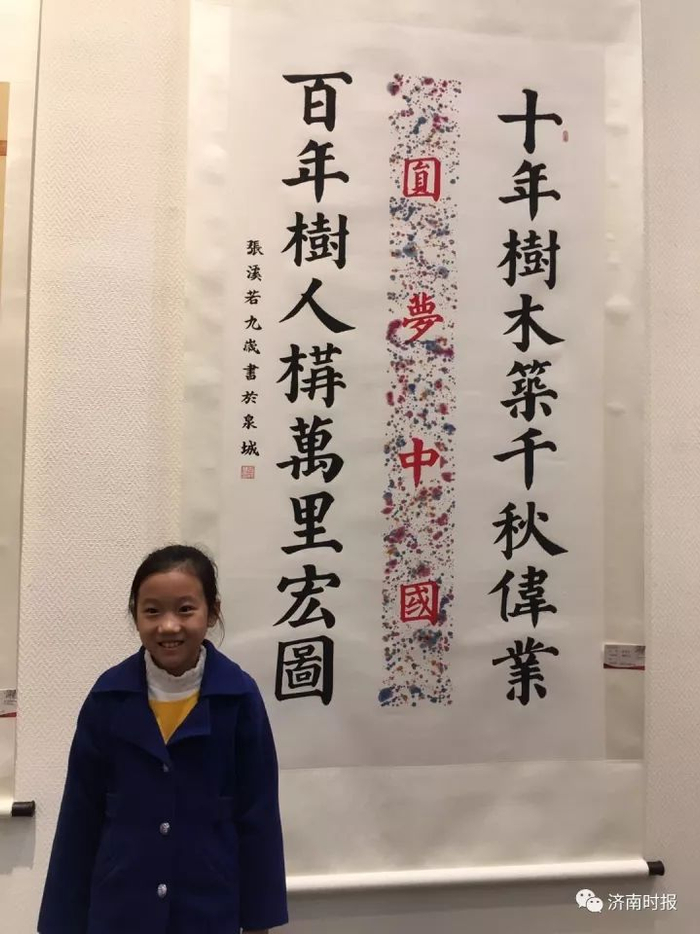 十年樹木築千秋偉業
圓夢中國
百年樹人構萬里宏圖
張溪若九歲書於泉城
济南时报